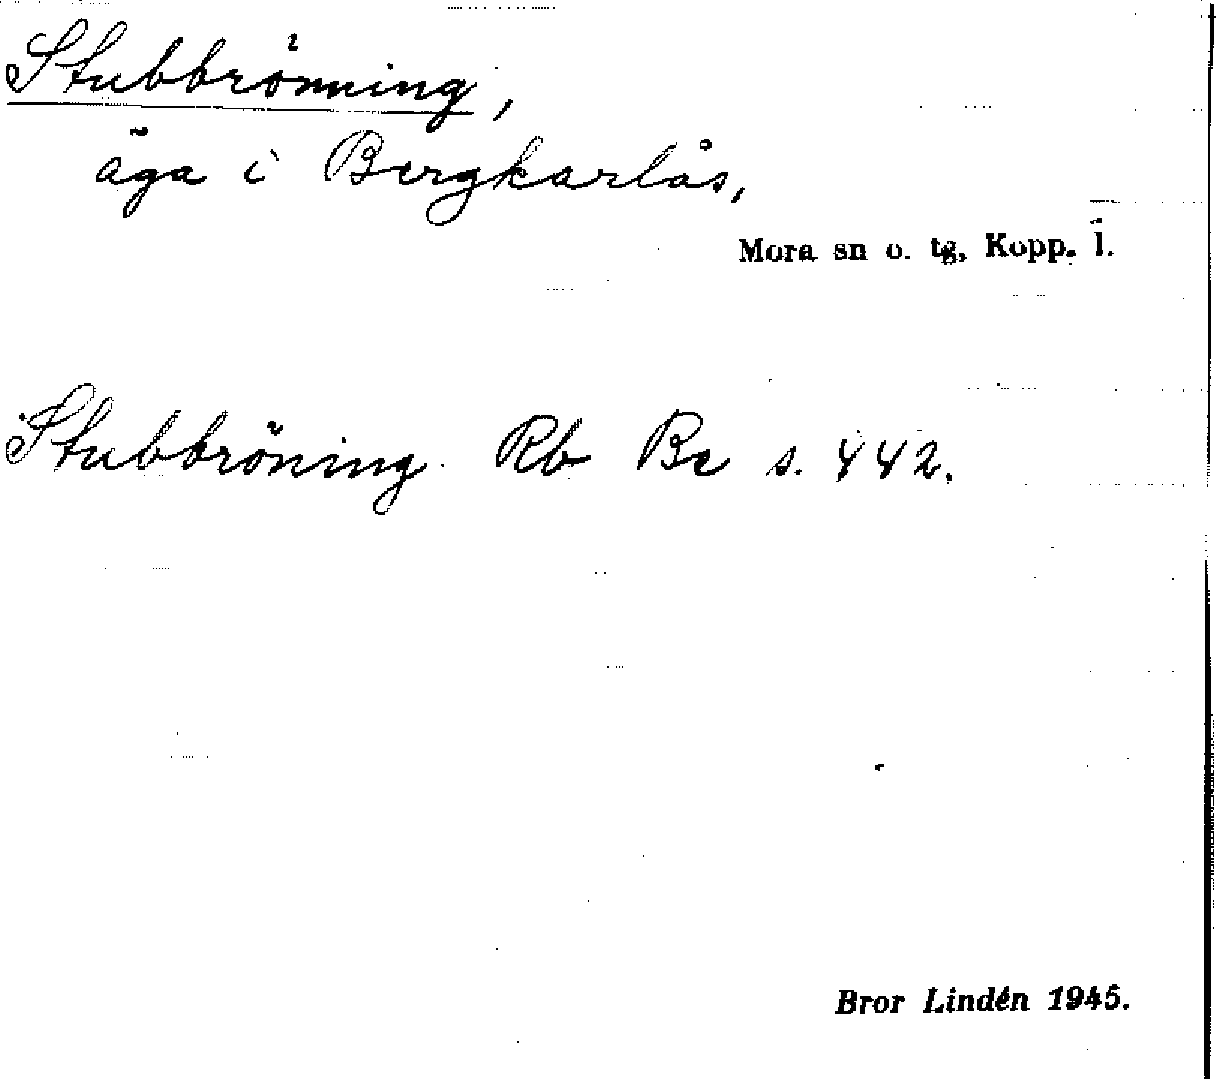 Stubbrönning,
äga i Bergkarlås,
Mora sn o. tg, Kopp. l.
Stubbröning. Rb Be s. 442.
Bror Lindén 1945.